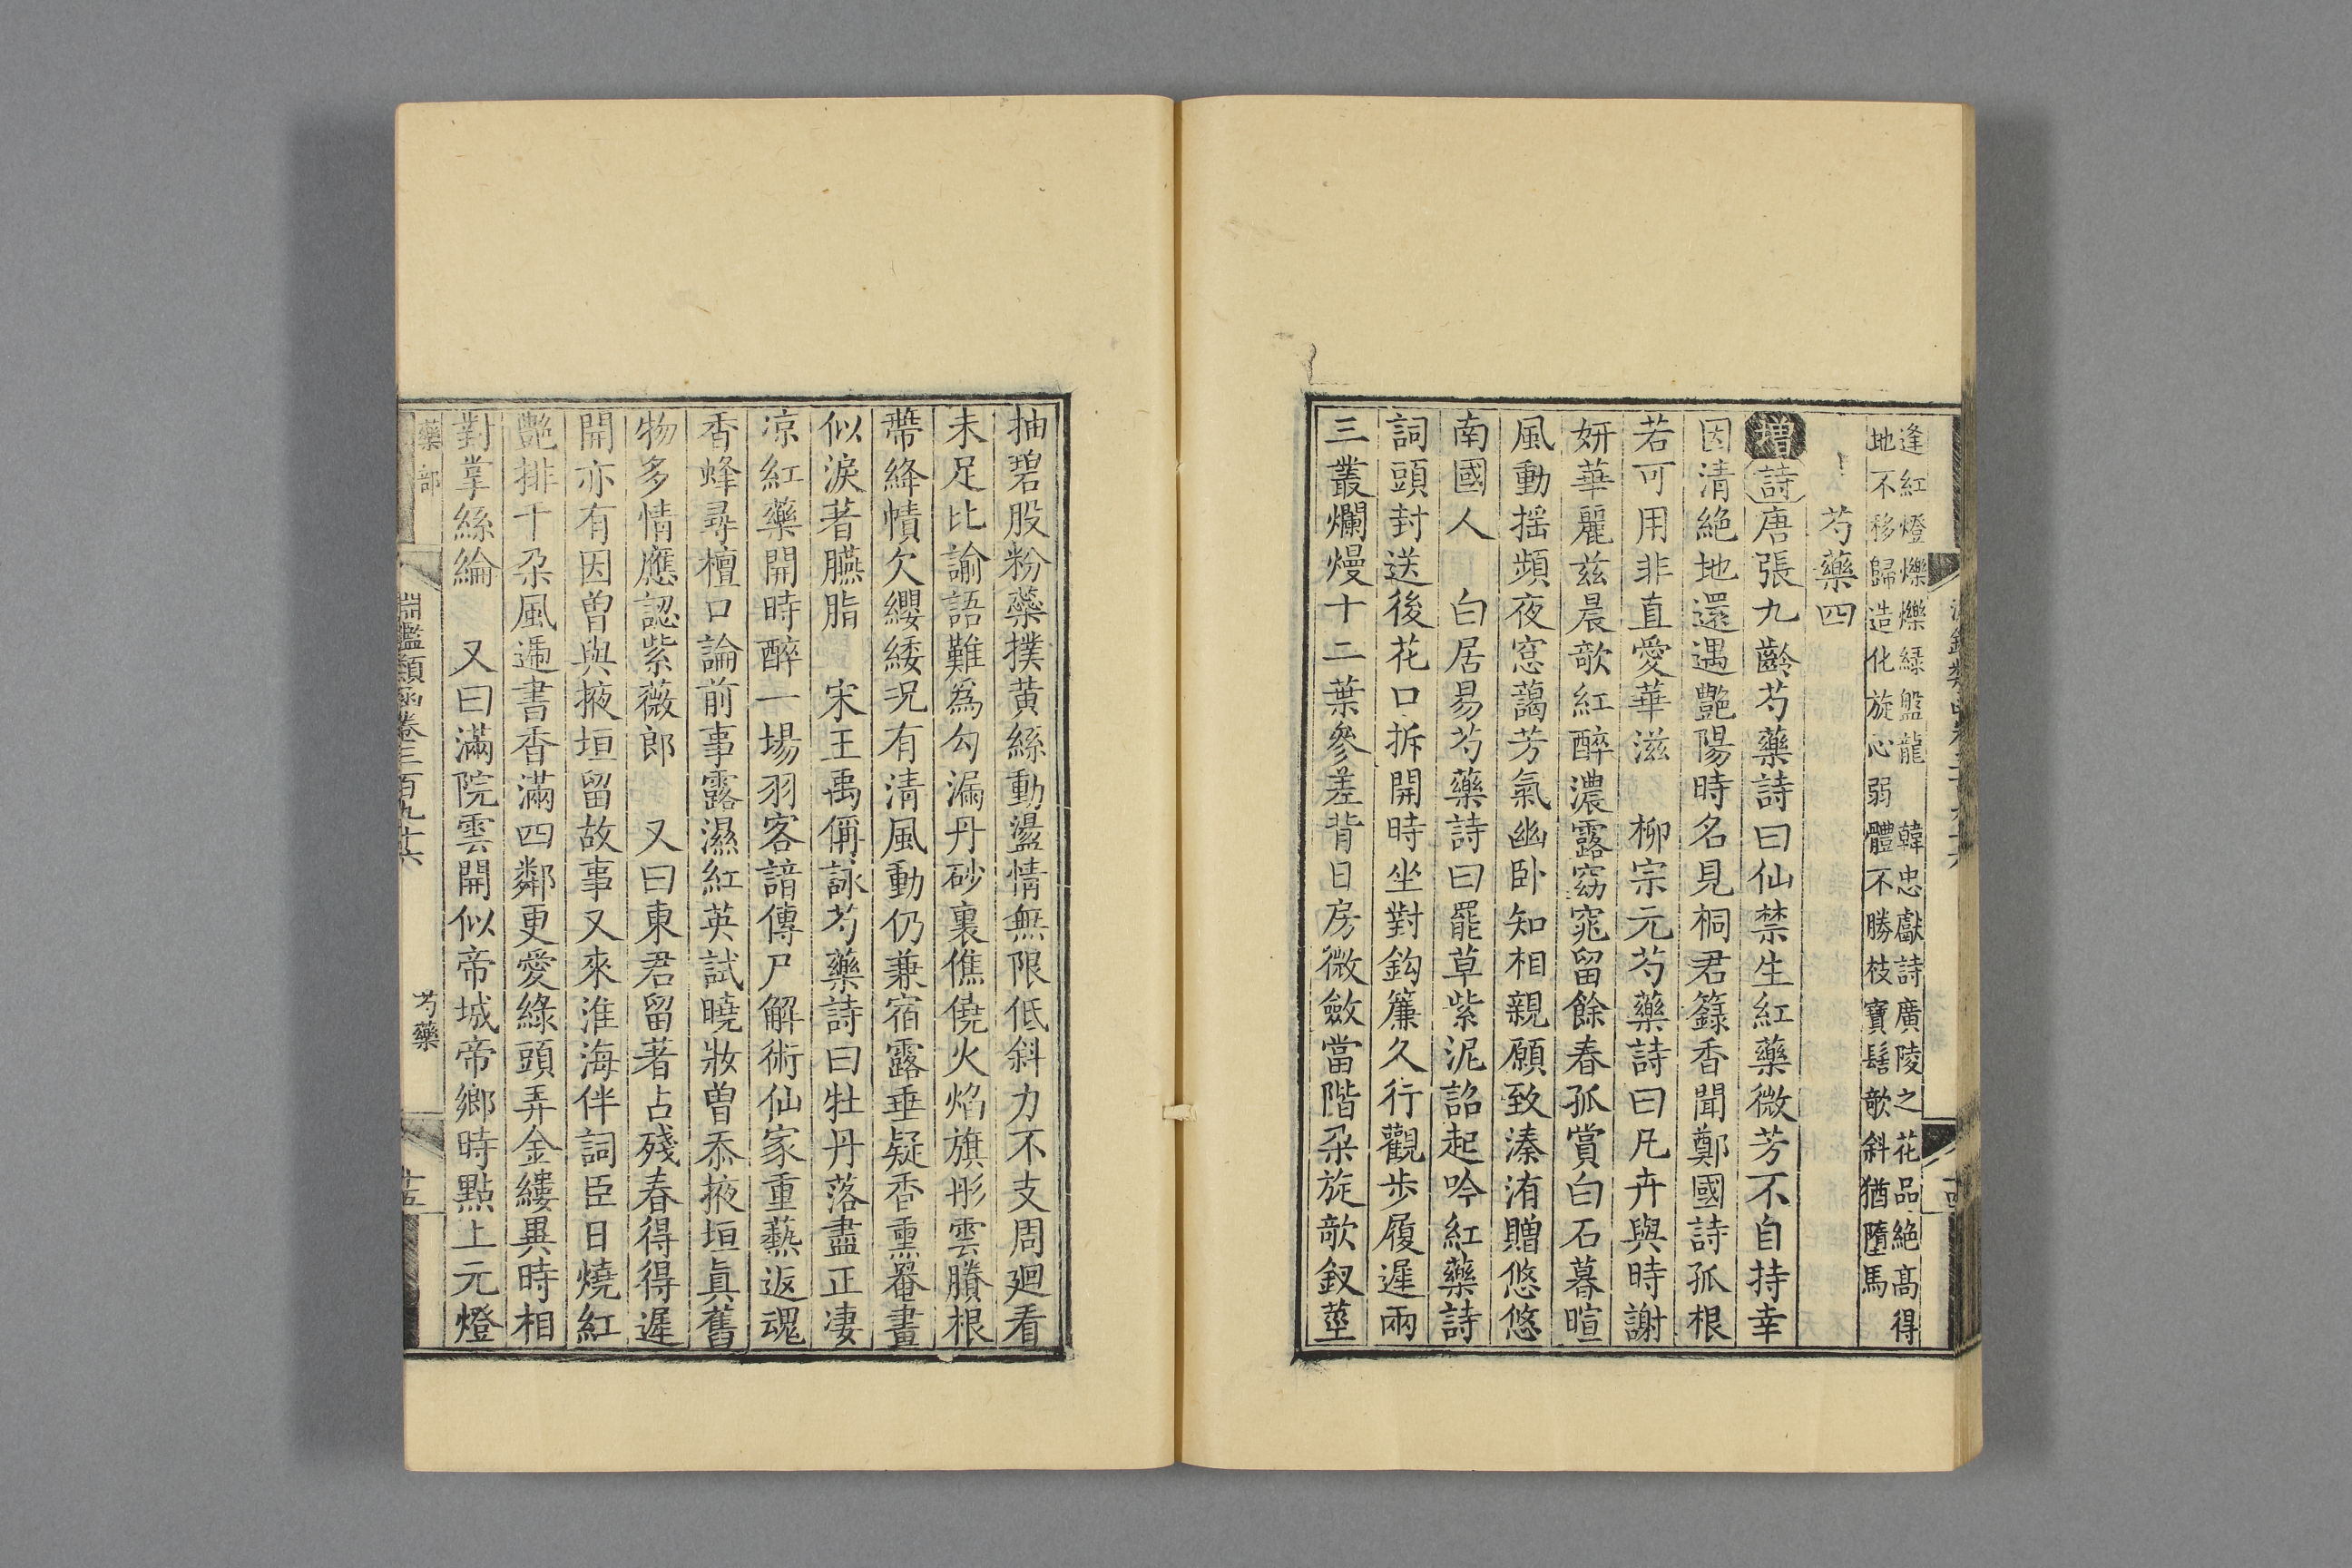 逢紅燈爍爍緑盤龍　韓忠獻詩廣陵之花品絶髙得
地不移歸造化旋心弱　體不勝枝寶髻欹斜猶墮馬
芍藥四
増詩唐張九齡芍藥詩曰仙禁生紅藥微芳不自持幸
因清絶地還遇艷陽時名見桐君籙香聞鄭國詩孤根
若可用非直愛華滋　柳宗元芍藥詩曰凡卉與時謝
妍華麗兹晨欹紅醉濃露窈窕留餘春孤賞白石暮暄
風動揺頻夜窓藹芳氣幽卧知相親願致溱洧贈悠悠
南國人　白居易芍藥詩曰罷草紫泥詔起吟紅藥詩
詞頭封送後花口拆開時坐對鈎簾久行觀歩履遲兩
三叢爛熳十二葉參差背日房微斂當階朶旋欹釵莖
抽碧股粉蘂撲黄絲動盪情無限低斜力不支周廻看
未足比諭語難爲勾漏丹砂裏僬僥火焰旗彤雲賸根
蔕絳幘欠纓緌况有清風動仍兼宿露垂疑香熏罨畫
似淚著臙脂　宋王禹偁詠芍藥詩曰牡丹落盡正凄
凉紅藥開時醉一場羽客諳傳尸解術仙家重爇返魂
香蜂尋檀口論前事露濕紅英試曉妝曾忝掖垣眞舊
物多情應認紫薇郎　又曰東君留著占殘春得得遲
開亦有因曾與掖垣留故事又來淮海伴詞臣日燒紅
艷排千朶風遞書香滿四鄰更愛綠頭弄金縷異時相
對掌絲綸　又曰滿院雲開似帝城帝鄉時點上元燈
藥部
淵鑑類函卷三百九十六
芍藥
十五